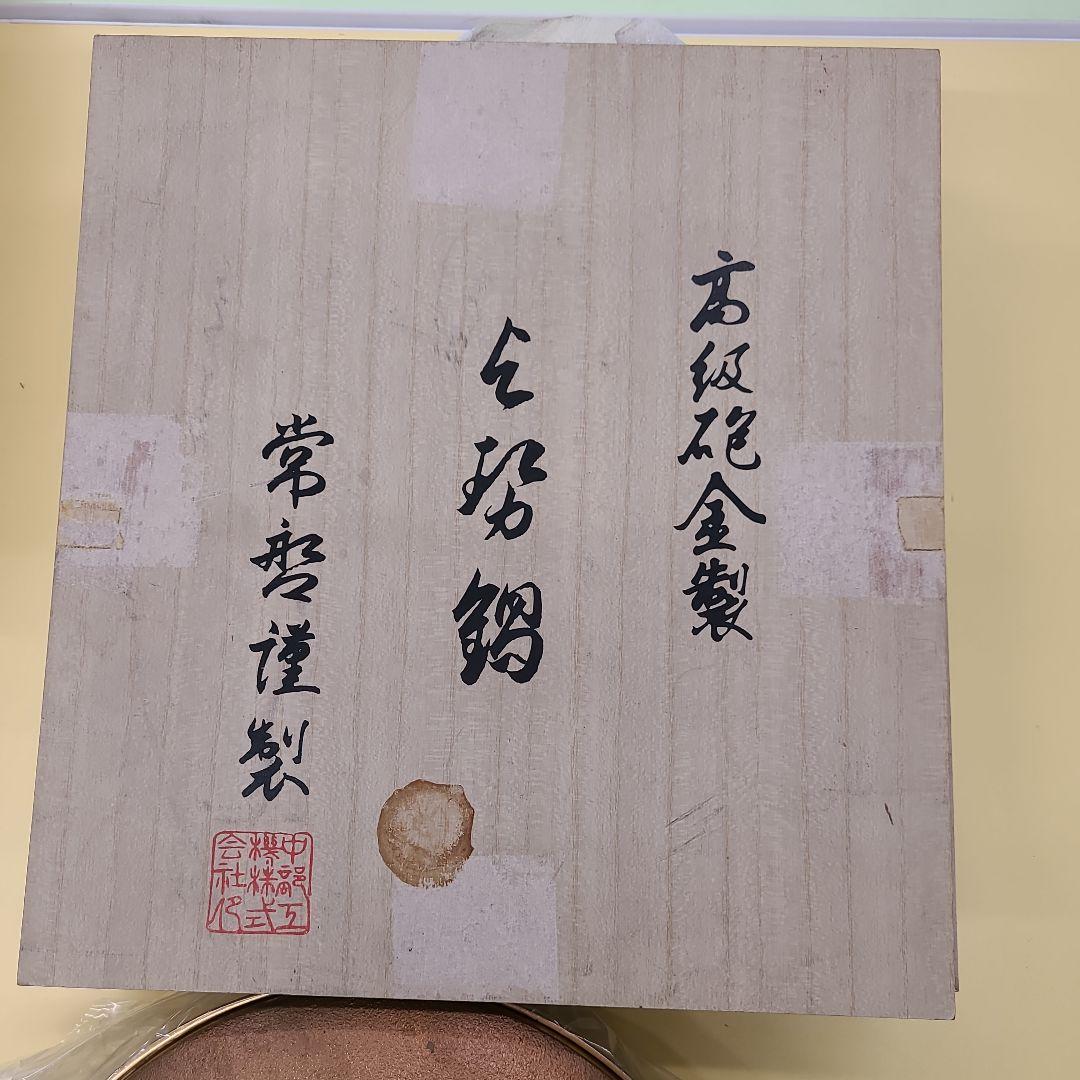 高級砲金製
与勢鍋
常磐謹製
中部工
機株式
会社印